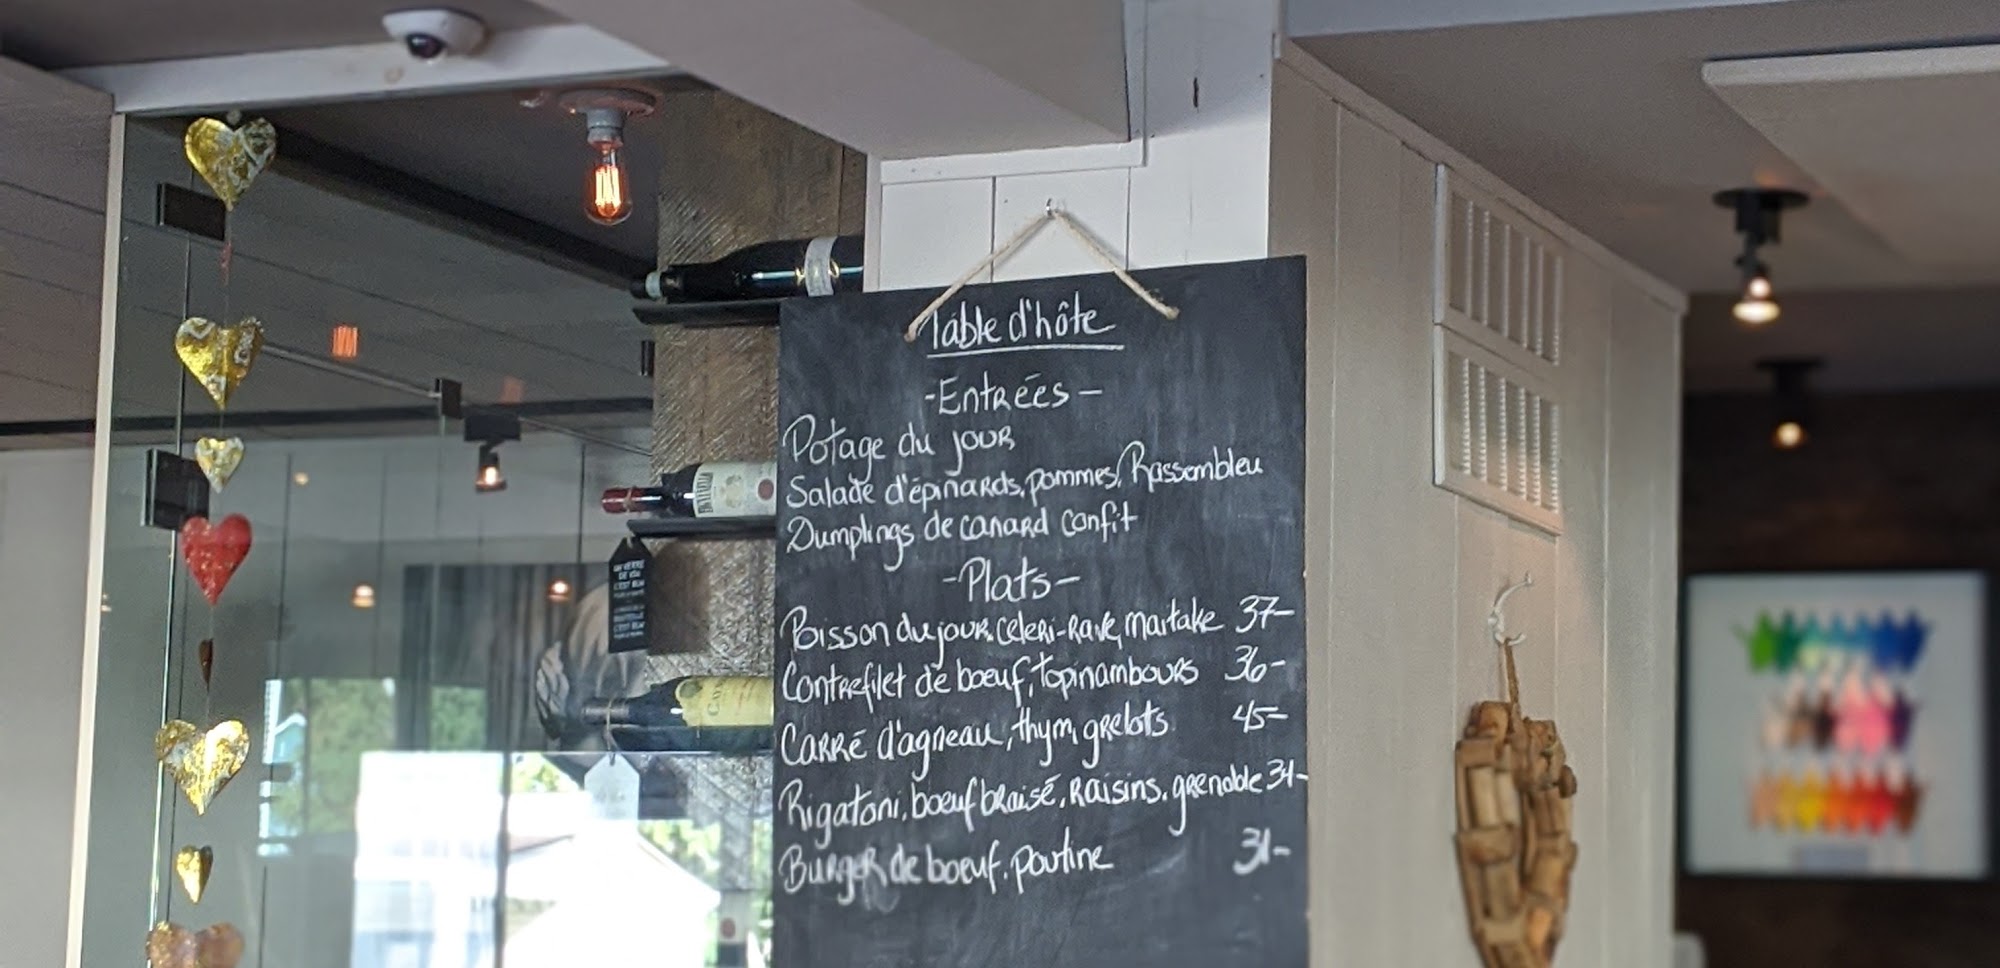 Table d'hôte
- Entrées -
Potage du jour
Salade d'épinards, pommes, Rassembleu
Dumplings de canard confit
- Plats -
Poisson du jour, céleri-rave, maitake 37-
Contrefilet de boeuf, topinambours 36-
Carré d'agneau, thym, grelots 45-
Rigatoni, boeuf braisé, raisins, grenoble 34-
Burger de boeuf, poutine 31-
UN VERRE
DE VIN
C'EST BON